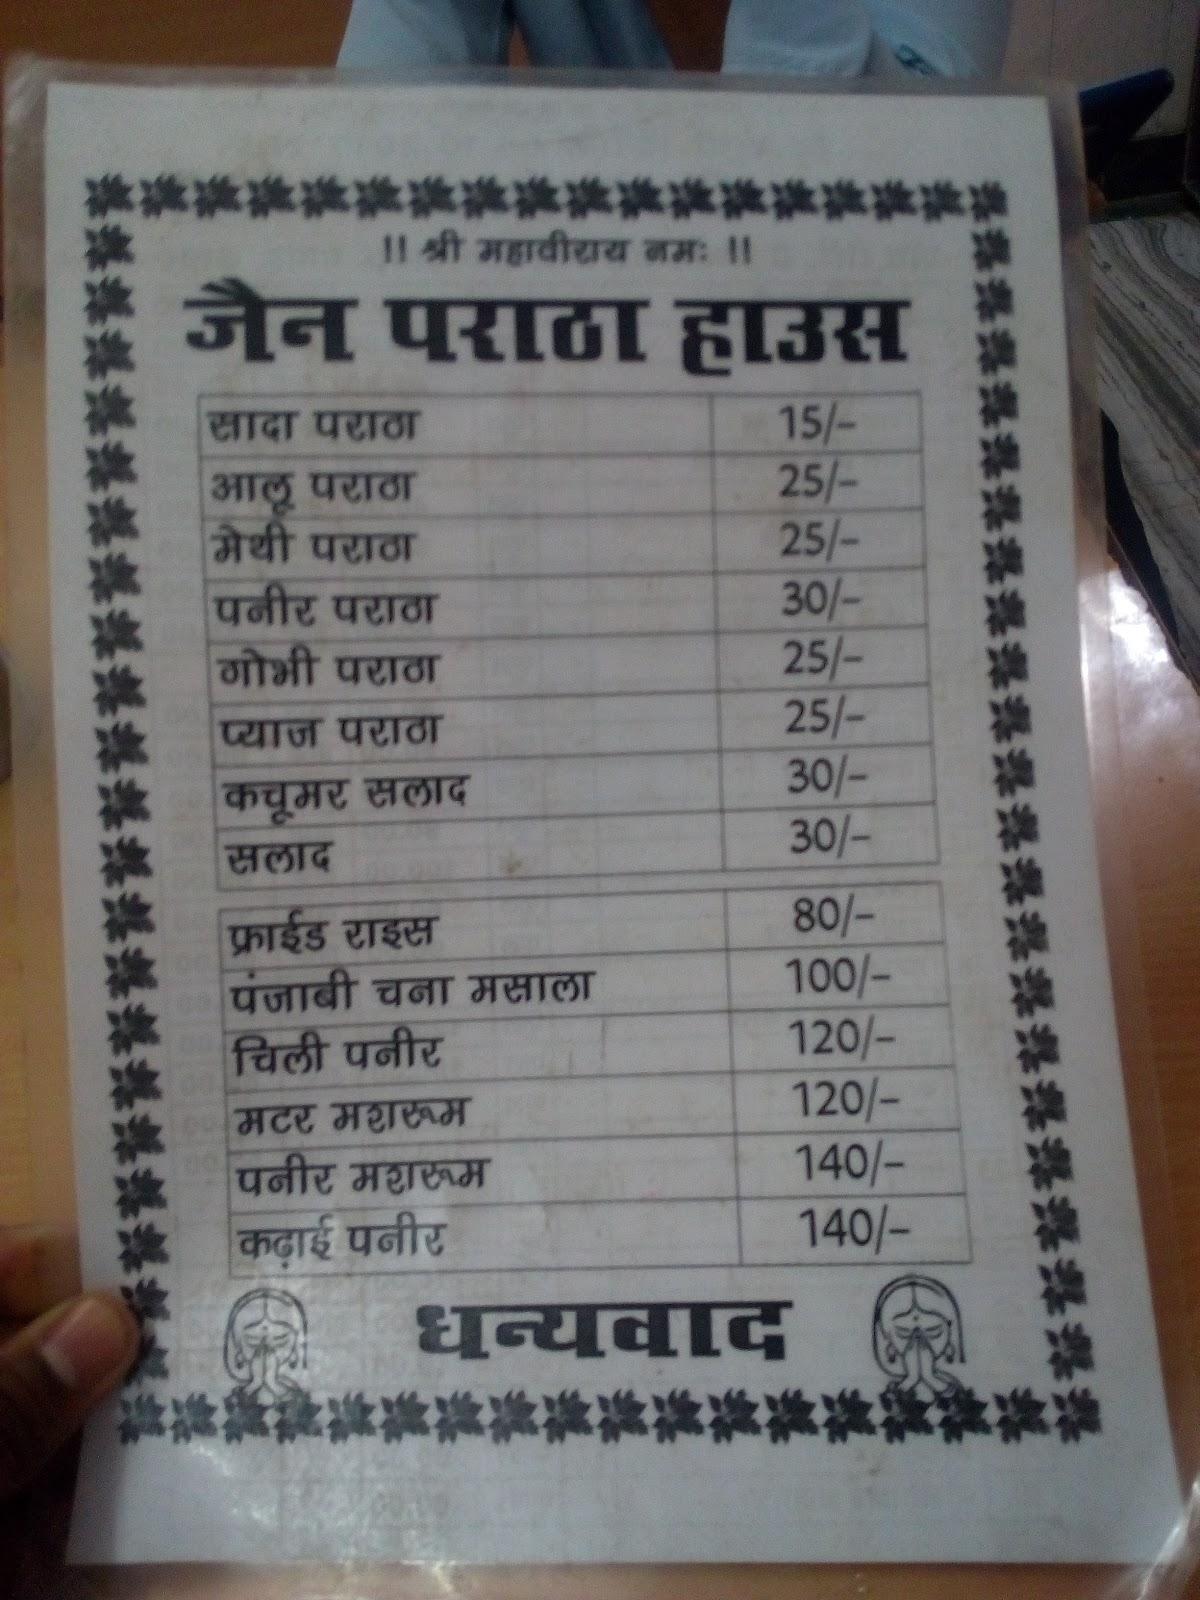 !! श्री महावीराय नमः !!
जैन पराठा हाउस
सादा पराठा 15/-
आलू पराठा 25/-
मेथी पराठा 25/-
पनीर पराठा 30/-
गोभी पराठा 25/-
प्याज पराठा 25/-
कचूमर सलाद 30/-
सलाद 30/-
फ्राईड राइस 80/-
पंजाबी चना मसाला 100/-
चिली पनीर 120/-
मटर मशरूम 120/-
पनीर मशरूम 140/-
कढ़ाई पनीर 140/-
धन्यवाद